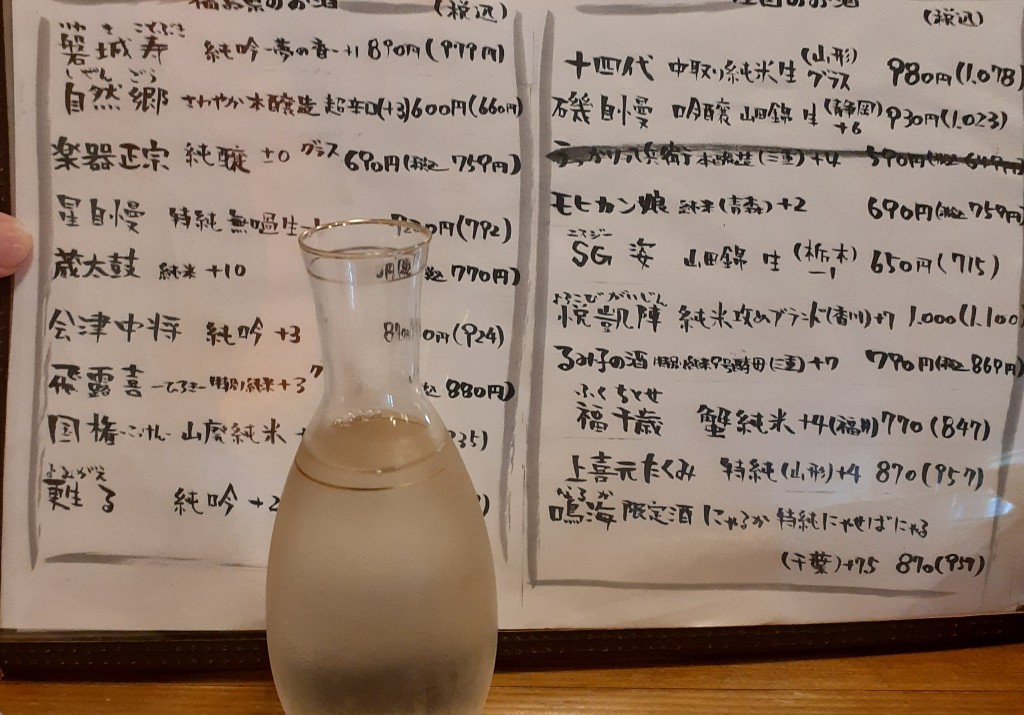 福島県のお酒 (税込)
いわき ことぶき
磐城寿 純吟 -夢の香- +1 890円(979円)
しぜん ごう
自然郷 さわやか本醸造 超辛口(+3) 600円(660円)
楽器正宗 純醸 ±0 グラス 690円(税込 759円)
星自慢 特純 無濾過生 円(792)
蔵太鼓 純米 +10 込 770円)
会津中将 純吟 +3 円(924)
飛露喜 -ひろき- 特別純米 +3 込 880円)
国権 -こっけん- 山廃純米
よみがえ
甦る 純吟 +2
全国のお酒 (税込)
十四代 中取り純米生 (山形) グラス 980円(1.078)
磯自慢 吟醸 山田錦 生 (静岡) +6 930円(1.023)
うっかり八兵衛 本醸造 (三重) +4 590円(税込 649円)
モヒカン娘 純米 (青森) +2 690円(税込 759円)
エスジー
SG 海 山田錦 生 (栃木) -1 650円(715)
よろこびがいじん
悦凱陣 純米 攻めブランド (香川) +7 1.000(1.100)
るみ子の酒 特別純米9号酵母 (三重) +7 790円(税込 869円)
ふくちとせ
福千歳 蟹純米 +4 (福井) 770 (847)
上喜元 たくみ 特純 (山形) +4 870 (957)
なるか
鳴海 限定酒 にゃるか 特純 にゃせばにゃる
(千葉) +7.5 870 (957)